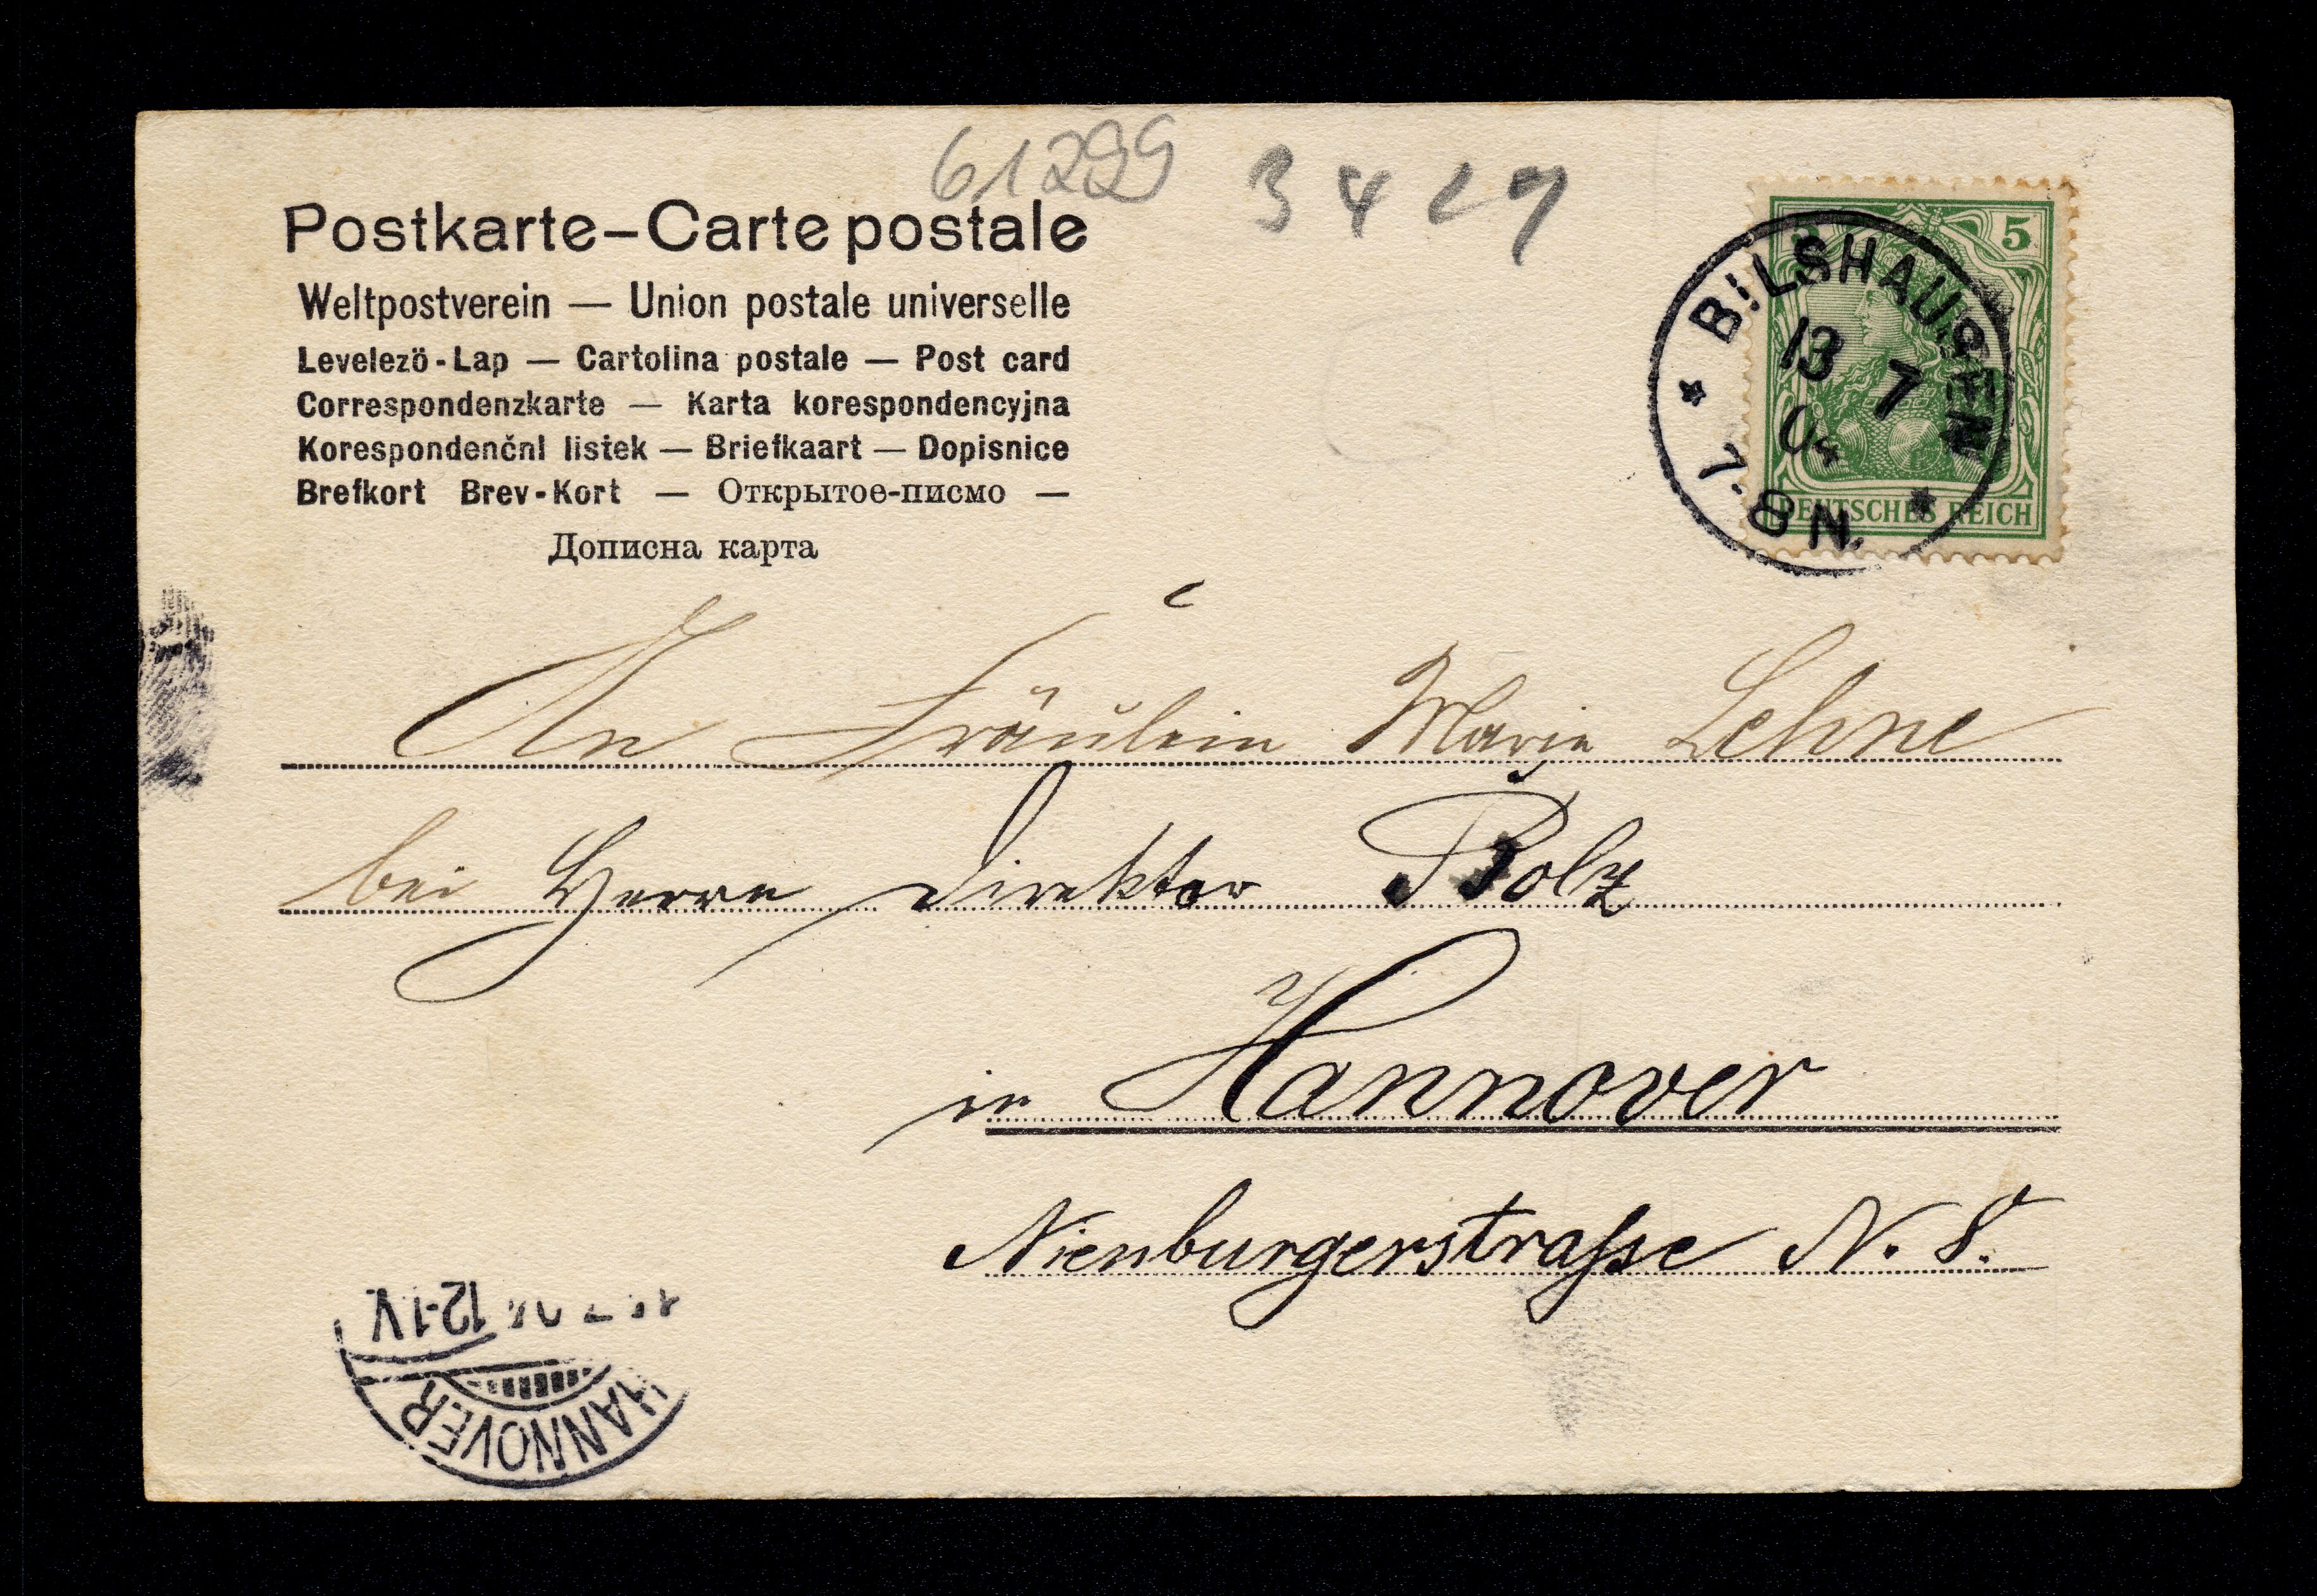 61299 3427
Postkarte–Carte postale
Weltpostverein — Union postale universelle
Levelezö-Lap — Cartolina postale — Post card
Correspondenzkarte — Karta korespondencyjna
Korespondenční listek — Briefkaart — Dopisnice
Brefkort Brev-Kort — Открытое-писмо —
Дописна карта
5
DEUTSCHES REICH
BILSHAUSEN
13 7
04
7-8 N.
An Fräulein Marie Lehne
bei Herrn Direktor Bolz
in Hannover
Nienburgerstrasse N. 8.
12-1 V.
HANNOVER